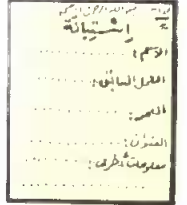 إستبانة
الاسم:
العمل السابق:
العمر:
العنوان:
معلومات أخرى: